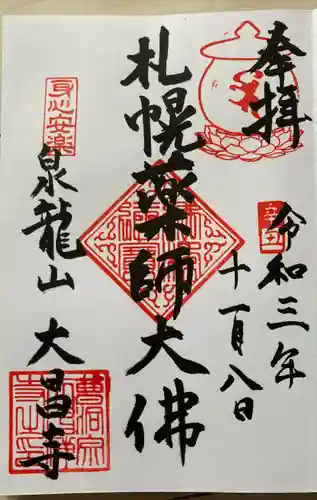 奉拝
令和三年
十一月八日
札幌薬師大佛
身心安楽
泉龍山 大昌寺